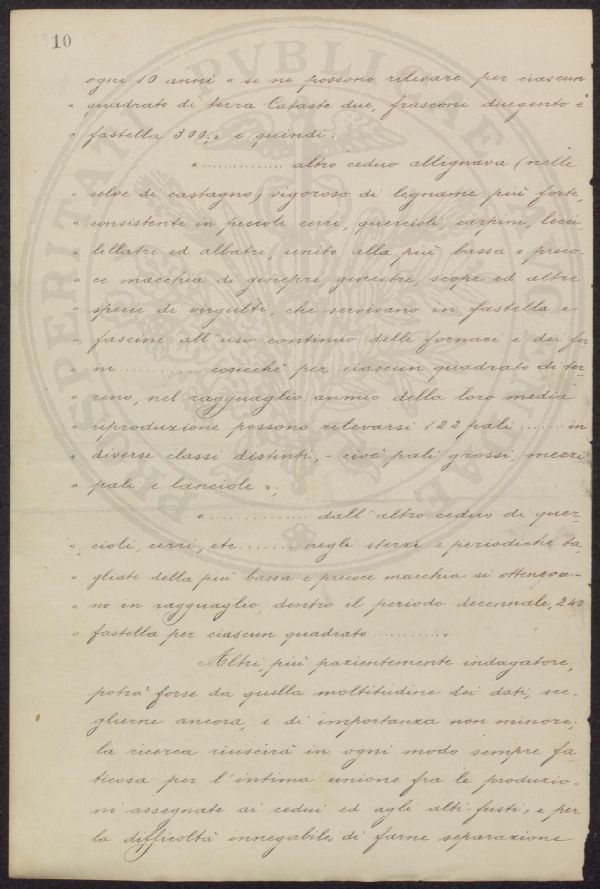 10
ogni 10 anni « se ne possono rilevare per ciascun
« quadrato di terra Cataste due, frasconi duegento e
« fastella 300,» e quindi:
« .............. altro ceduo allignava (nelle
« selve di castagno) vigoroso di legname più forte,
« consistente in piccoli cerri, quercioli, carpini, lecci
« lillatri ed albatri, unito alla più bassa e preco-
« ce macchia di ginepri ginestre, scope ed altre
« specie di virgulti, che servivano in fastella e
« fascine all'uso continuo delle fornaci e dei for
« ni ............ cosicchè per ciascun quadrato di ter-
« reno, nel ragguaglio annuo della loro media
« riproduzione possono rilevarsi 122 pali ....... in
« diverse classi distinti, - cioè pali grossi mezzi
« pali e lanciole »;
« .............. dall'altro ceduo di quer-
« cioli, cerri, etc ....... negli sterzi e periodiche ta-
« gliate della più bassa e precoce macchia si otteneva-
« no in ragguaglio, dentro il periodo decennale, 240
« fastella per ciascun quadrato .......... »
Altri, più pazientemente indagatore,
potrà forse da quella moltitudine dei dati, sce-
glierne ancora, e di importanza non minore;
la ricerca riuscirà in ogni modo sempre fa-
ticosa per l'intima unione fra le produzio-
ni assegnate ai cedui ed agli alti-fusti, e per
la difficoltà innegabile di farne separazione
PROSPERITATI PVBLICAE AVGENDAE